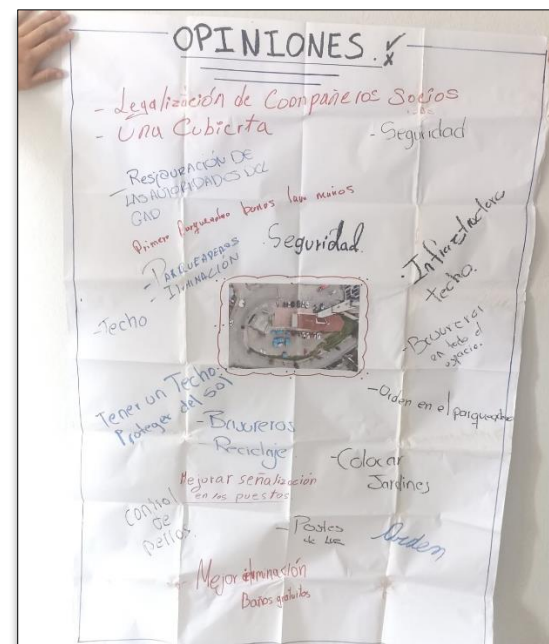 OPINIONES.
- Legalización de Coompañeros Socios
- Una Cubierta
- Seguridad
- Restauración DE
LAS AUTORIDADES DEL
GAD
Primero Parqueadero baños lava manos
Seguridad.
- Infraestructura
techo.
- PARQUEADEROS
- ILUMINACIÓN
- Techo
- Basureros
en todo el
espacio.
Tener un Techo:
Proteger del Sol
- Orden en el parqueadero
- Basureros
Reciclaje.
- Colocar
Jardines
Mejorar señalización
en los puestos
Control
de
perros.
- Postes
de luz
Orden
- Mejor iluminación
Baños gratuitos